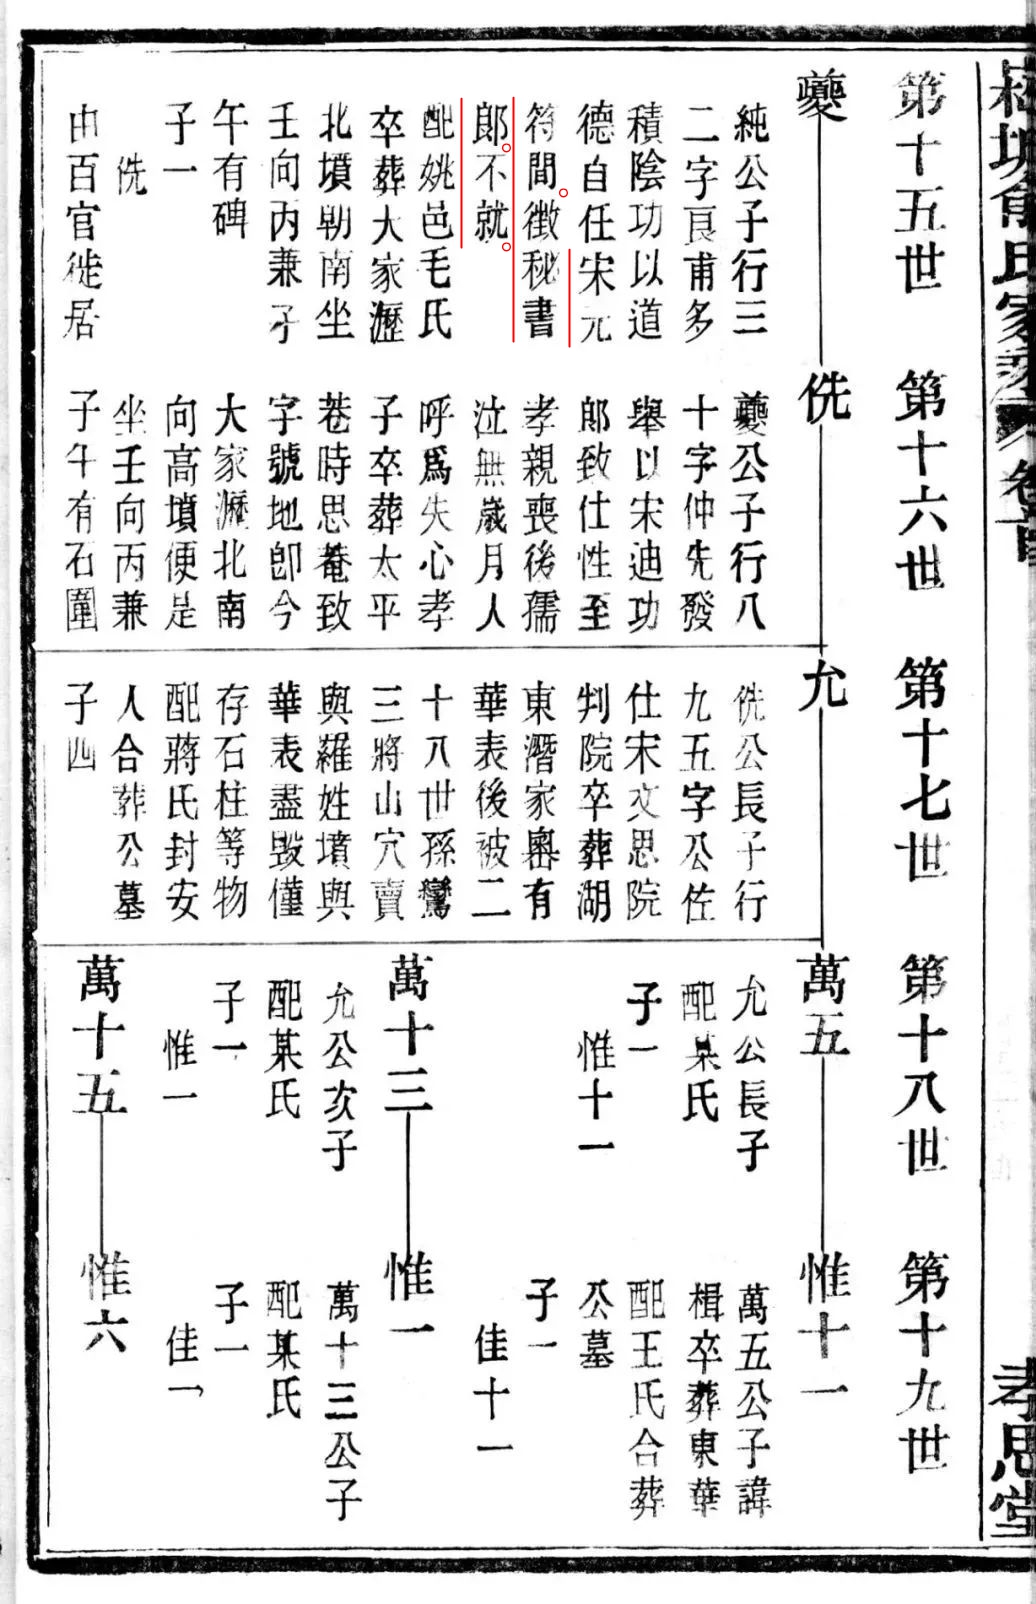 氏家
孝思堂
第十五世
第十六世
第十七世
第十八世
第十九世
夔
純公子行三
二字良甫多
積陰功以道
德自任宋元
符間。徵秘書
郎。不就。
配姚邑毛氏
卒葬大家瀝
北墳朝南坐
壬向丙兼子
午有碑
子一
侁
由百官徙居
侁
夔公子行八
十字仲先發
舉以宋迪功
郎致仕性至
孝親喪後孺
泣無歲月人
呼爲失心孝
子卒葬太平
菴時思菴致
字號地即今
大家瀝北南
向高墳便是
坐壬向丙兼
子午有石圍
允
侁公長子行
九五字公佐
仕宋文思院
判院卒葬湖
東潛家嶴有
華表後被二
十八世孫鸞
三將山穴賣
與羅姓墳與
華表盡毀僅
存石柱等物
配蔣氏封安
人合葬公墓
子四
萬五
允公長子
配某氏
子一
惟十一
萬十三
允公次子
配某氏
子一
惟一
萬十五
惟十一
萬五公子諱
楫卒葬東華
配王氏合葬
公墓
子一
佳十一
惟一
萬十三公子
配某氏
子一
佳一
惟六